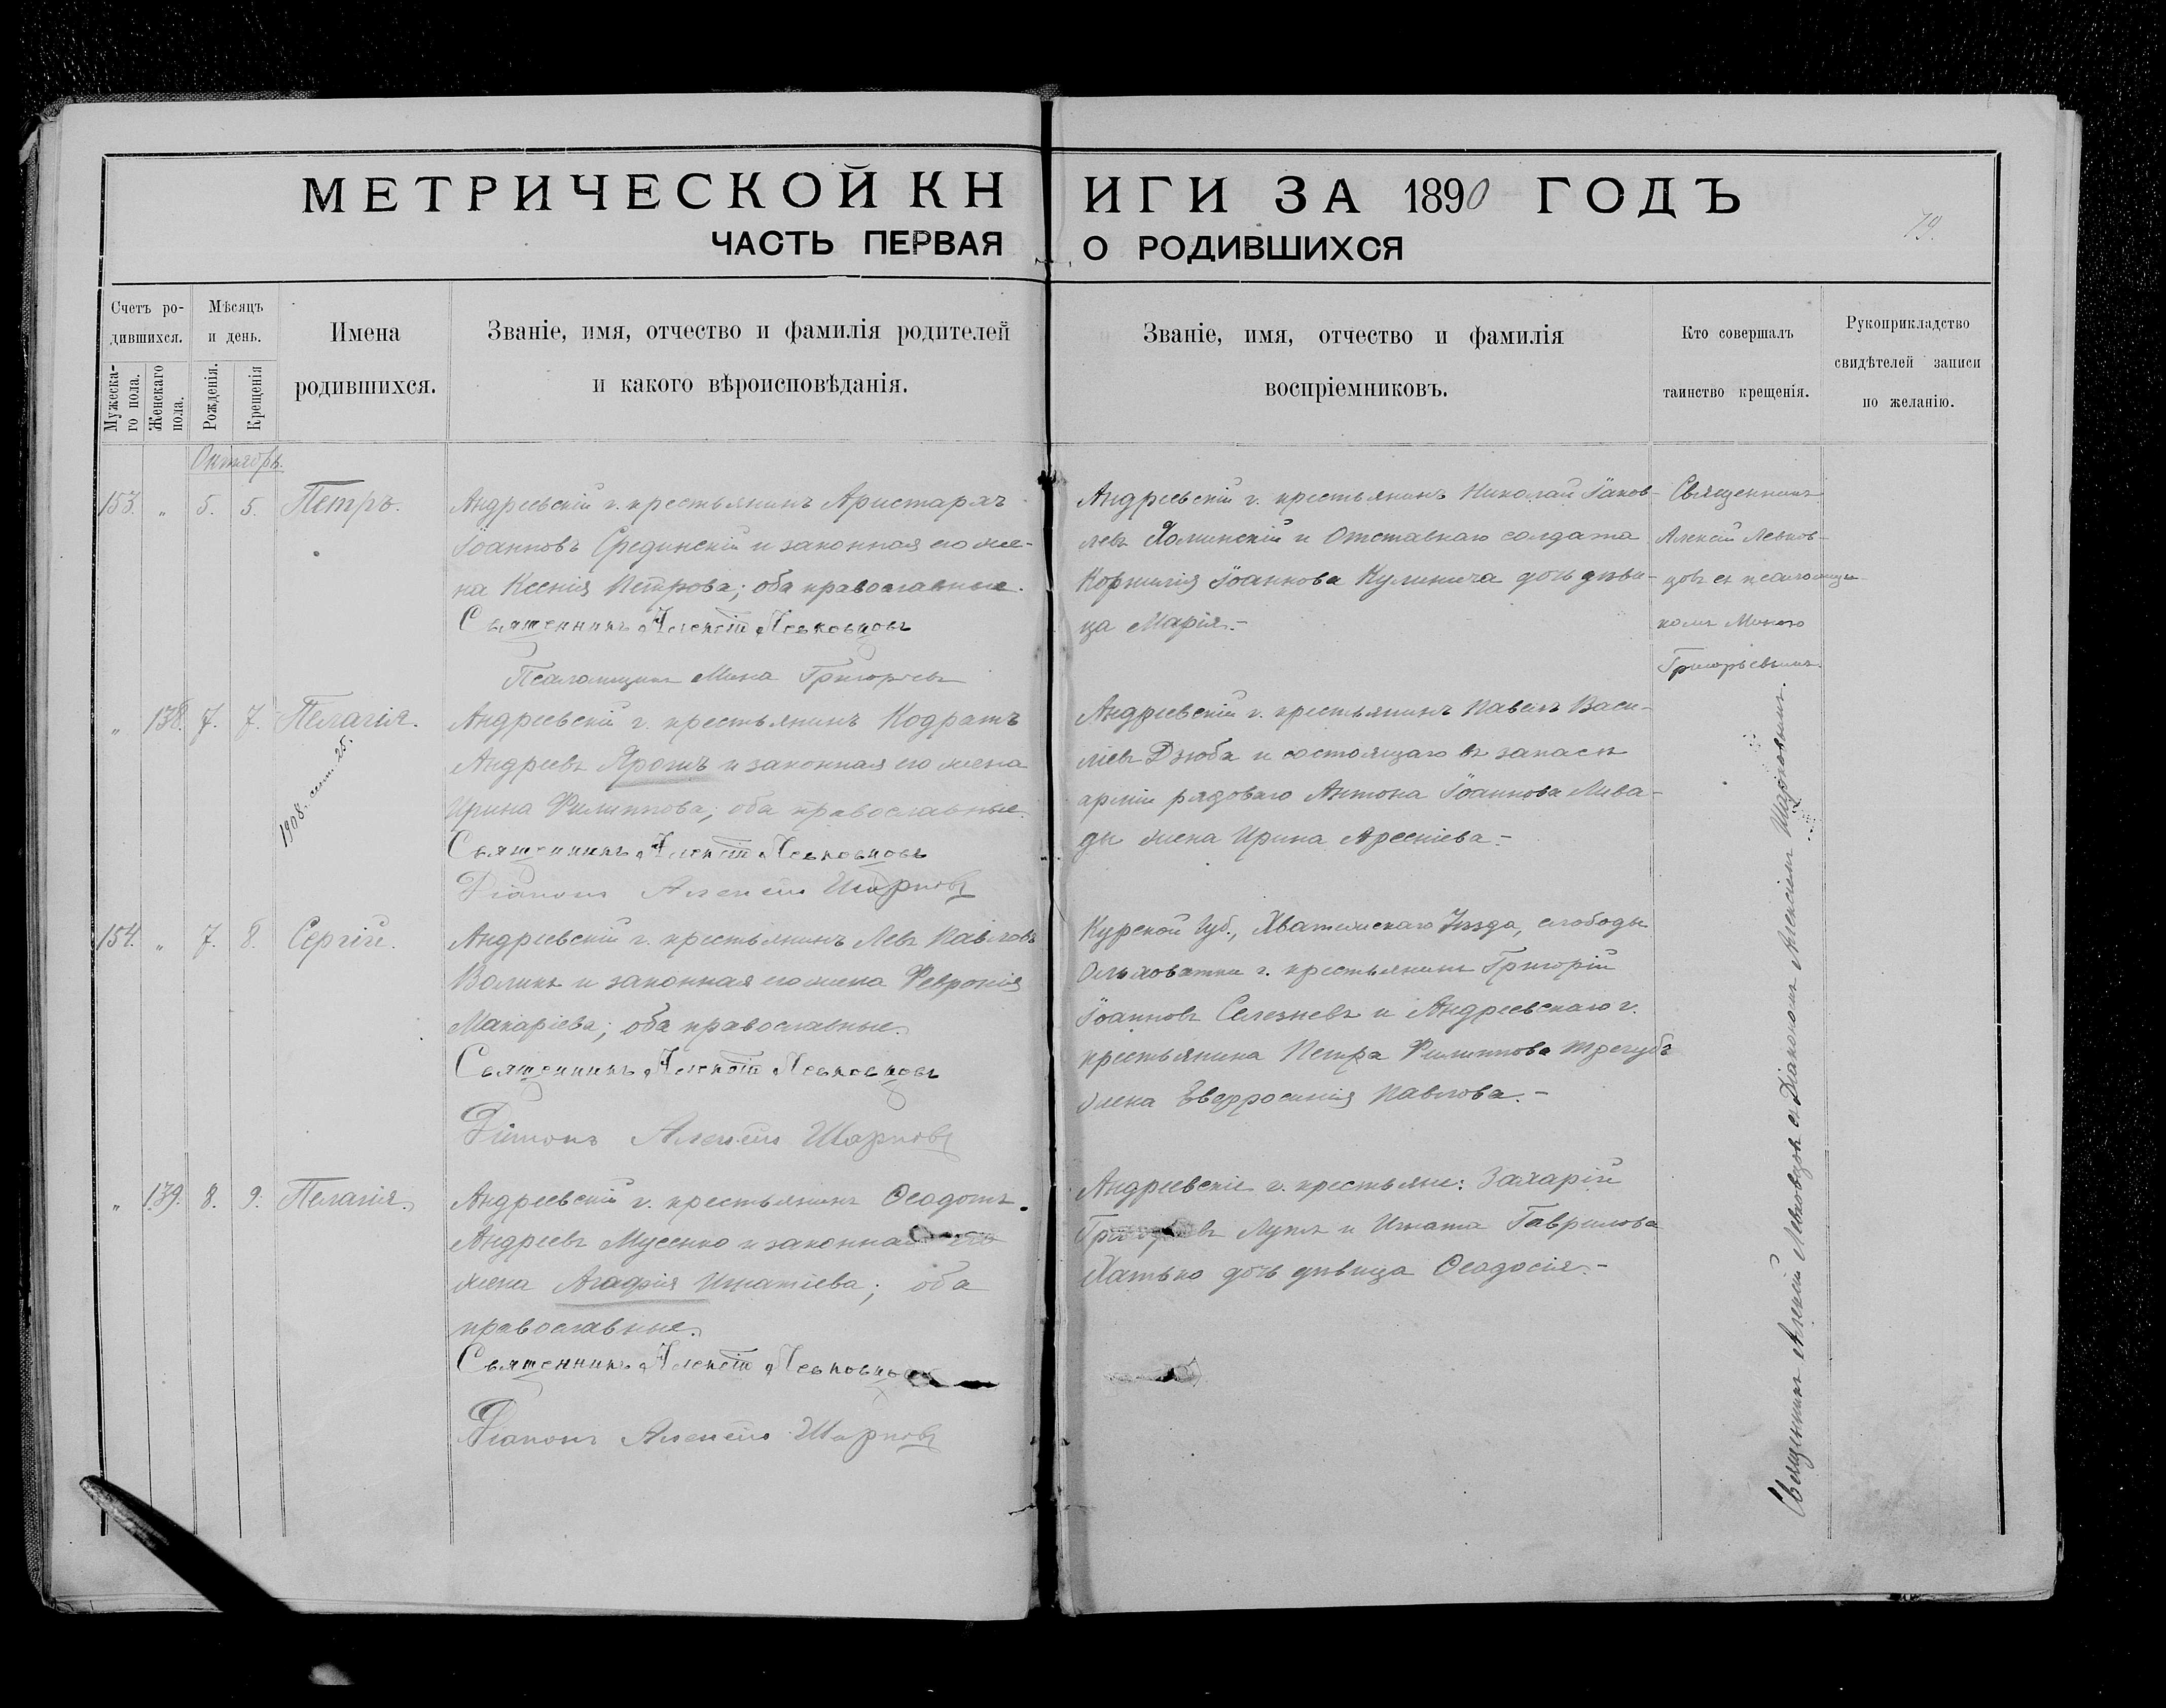 МЕТРИЧЕСКОЙ КНИГИ ЗА 1890 ГОДЪ
ЧАСТЬ ПЕРВАЯ О РОДИВШИХСЯ
79.
Счетъ ро-
дившихся.
Мужеска-
го пола.
Женскаго
пола.
Мѣсяцъ
и день.
Рожденія.
Крещенія
Имена
родившихся.
Званіе, имя, отчество и фамилія родителей
и какого вѣроисповѣданія.
Званіе, имя, отчество и фамилія
воспріемниковъ.
Кто совершалъ
таинство крещенія.
Рукоприкладство
свидѣтелей записи
по желанію.
Октябрь.
153. „ 5. 5. Петръ.
Андреевскій г. крестьянинъ Аристархъ
Іоанновъ Срединскій и законная его же-
на Ксенія Петрова; оба православные.
Священникъ Алексій Левковцовъ
Псаломщикъ Мина Григорьевъ
Андреевскій г. крестьянинъ Николай Іаков-
левъ Холминскій и Отставнаго солдата
Корнилія Іоаннова Кулинича дочь дѣви-
ца Марія.-
Священникъ
Алексій Левков-
цовъ съ псаломщи-
комъ Миною
Григорьевымъ.
„ 138. 7. 7. Пелагія.
1908. сент. 25.
Андреевскій г. крестьянинъ Кодратъ
Андреевъ Ярошъ и законная его жена
Ирина Филиппова; оба православные.
Священникъ Алексій Левковцовъ
Діаконъ Алексій Шарковъ
Андреевскій г. крестьянинъ Павелъ Васи-
ліевъ Дзюба и состоящаго въ запасѣ
арміи рядоваго Антона Іоаннова Лива-
ды жена Ирина Арсеніева.-
154. „ 7. 8. Сергій.
Андреевскій г. крестьянинъ Левъ Павловъ
Воликъ и законная его жена Февронія
Макаріева; оба православные.
Священникъ Алексій Левковцовъ
Діаконъ Алексій Шарковъ
Курской Губ., Уѣзда, слободы
Ольховатки г. крестьянинъ Григорій
Іоанновъ Селезневъ и Андреевскаго г.
крестьянина Петра Филиппова Трегубъ
жена Евфросинія Павлова.-
„ 139. 8. 9. Пелагія.
Андреевскій г. крестьянинъ Ѳеодотъ
Андреевъ Мусенко и законная его
жена Агафія Игнатіева; оба
православные.
Священникъ Алексій Левковцовъ
Діаконъ Алексій Шарковъ
Андреевскіе г. крестьяне: Захарій
Лупъ и Игната Гаврилова
Хатько дочь дѣвица Ѳеодосія.-
Священникъ Алексій Левковцовъ съ Діакономъ Алексіемъ Шарковымъ.